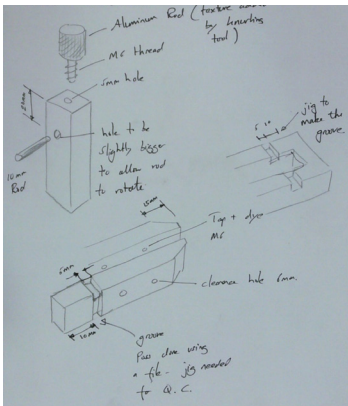 Aluminum Rod (texture
by knurling
tool)
M6 thread
6mm hole
hole to be
slightly bigger
to allow rod
to rotate
10mm
Rod
jig to
make the
groove.
15mm
Tap + dye
M6
6mm
clearance hole 6mm.
10mm
groove
Pass done using
a file - jig needed
to Q.C.